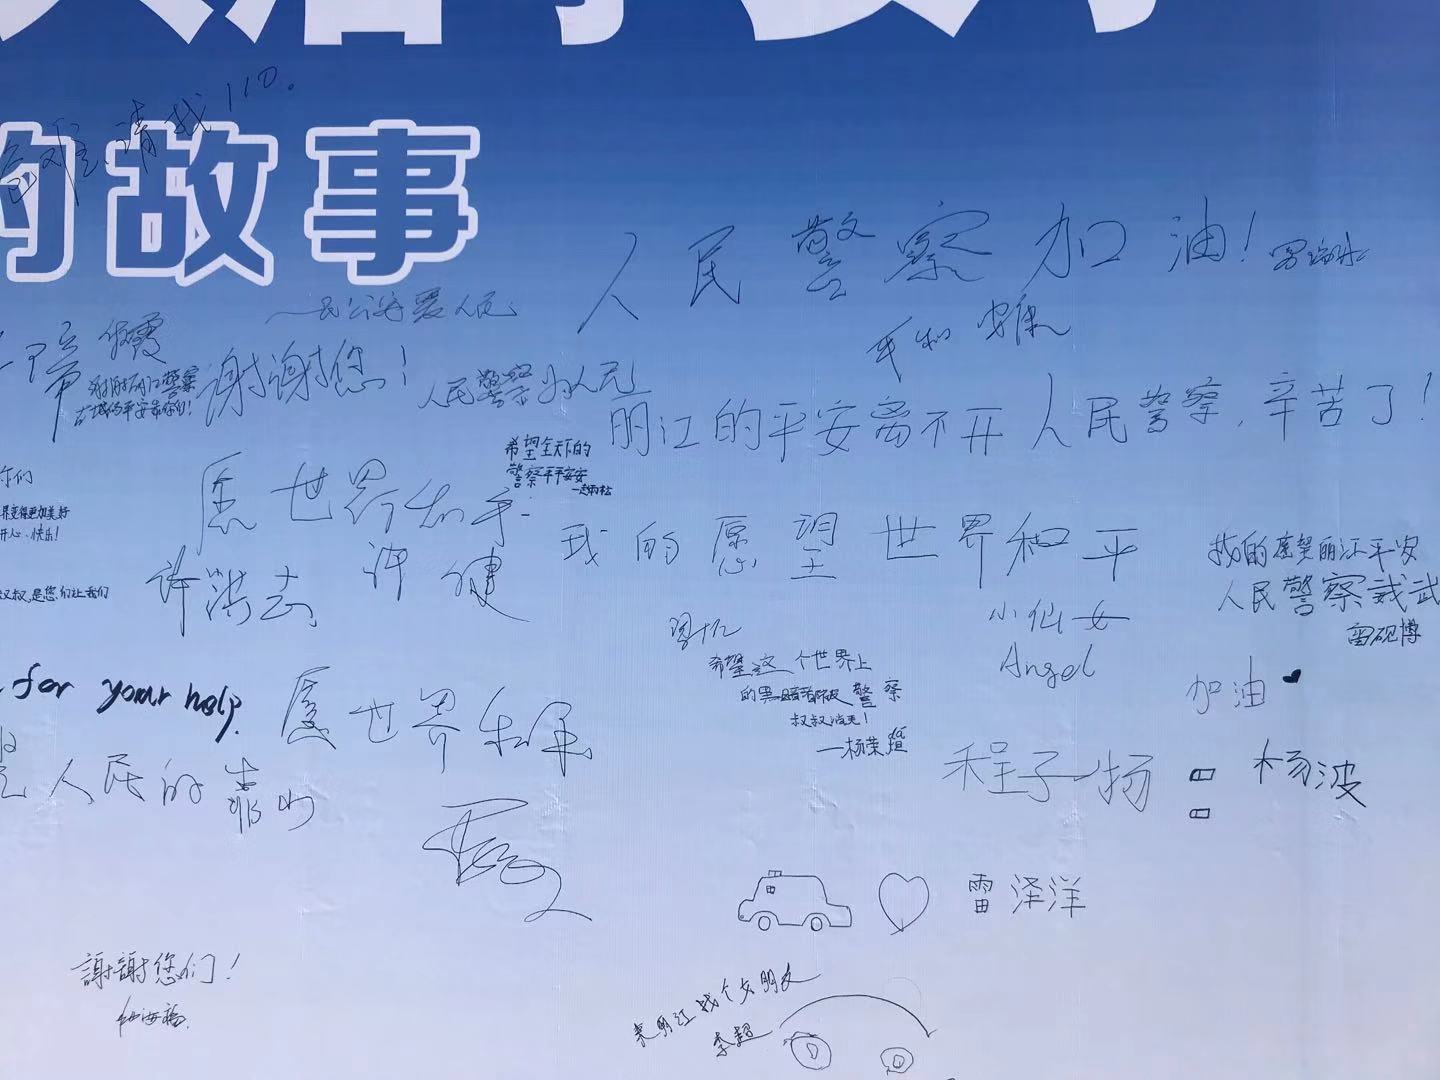 的故事
请找110。
人民警察加油！
平和
人民公安爱人民
谢谢您！
谢谢丽江警察
古城的平安靠你们！
人民警察为人民
丽江的平安离不开人民警察，辛苦了！
希望全天下的
警察平平安安
你们
界变得更加美好
开心、快乐！
愿世界和平
我的愿望世界和平
我的愿望丽江平安
人民警察威武
雷砚博
叔叔，是您们让我们
许洪志
许健
小仙女
Angel
希望这个世界上
的黑暗都被警察
叔叔消灭！
—杨荣煊
for your help.
愿世界和平
加油
人民的靠山
程子扬
杨波
雷泽洋
謝謝您们！
来丽江找个女朋友
李超